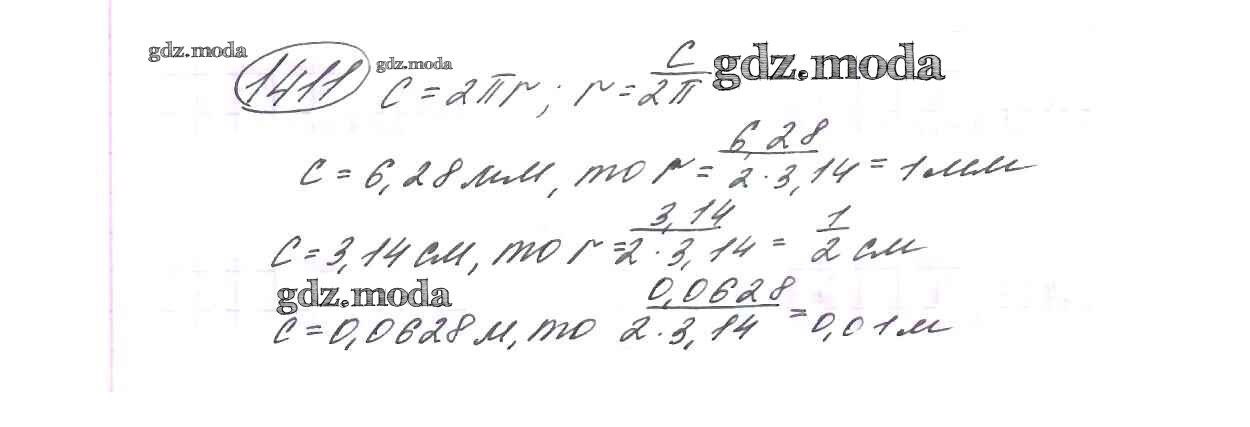 gdz.moda
1411 gdz.moda C = 2πr; r = C/2π gdz.moda
C = 6,28 мм, то r = 6,28/2·3,14 = 1 мм
C = 3,14 см, то r = 3,14/2·3,14 = 1/2 см
gdz.moda
C = 0,0628 м, то 0,0628/2·3,14 = 0,01 м